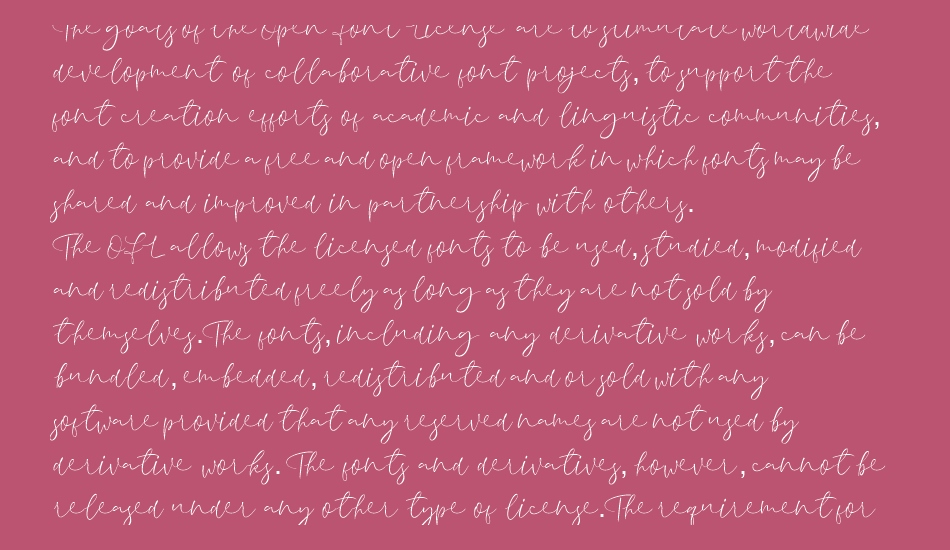 The goals of the Open Font License are to stimulate worldwide
development of collaborative font projects, to support the
font creation efforts of academic and linguistic communities,
and to provide a free and open framework in which fonts may be
shared and improved in partnership with others.
The OFL allows the licensed fonts to be used, studied, modified
and redistributed freely as long as they are not sold by
themselves. The fonts, including any derivative works, can be
bundled, embedded, redistributed and or sold with any
software provided that any reserved names are not used by
derivative works. The fonts and derivatives, however, cannot be
released under any other type of license. The requirement for